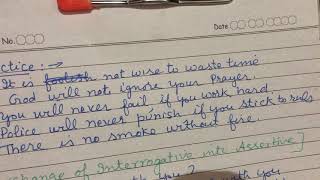 No.
Date
ctice :→
It is foolish not wise to waste time
God will not ignore your Prayer.
You will never fail if you work hard.
Police will never punish if you stick to ruls
There is no smoke without fire.
Change of Interrogative into Assertive]
you ?